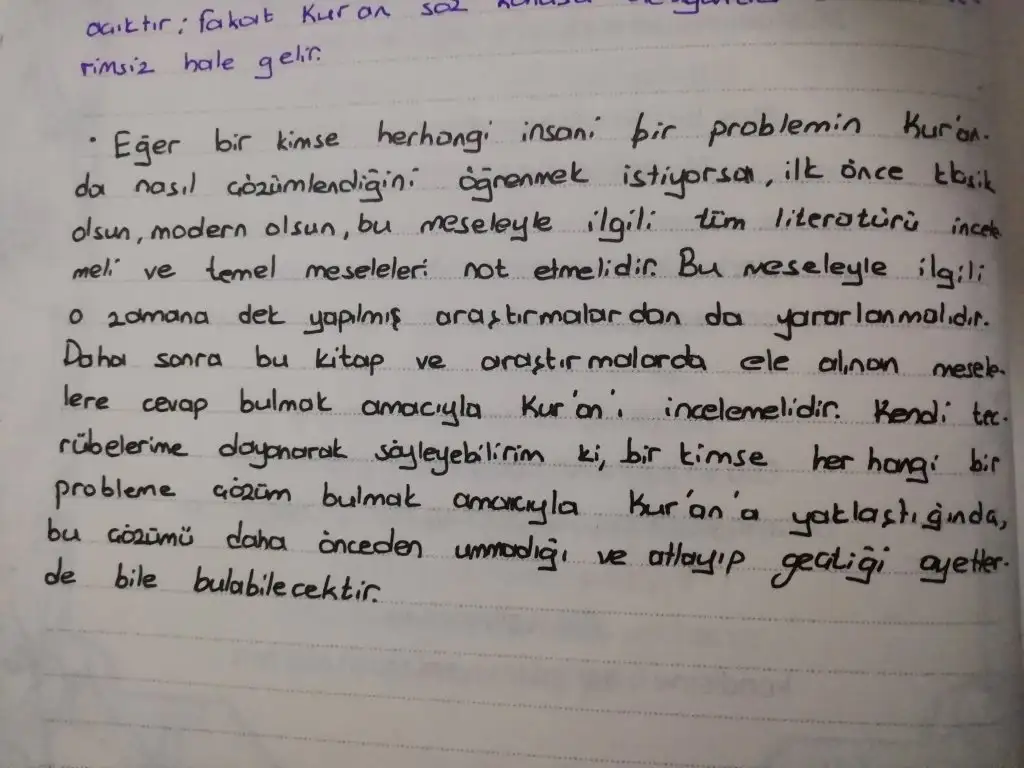 açıktır; fakat Kur'an söz
rimsiz hale gelir.
• Eğer bir kimse herhangi insani bir problemin Kur'ân-
da nasıl çözümlendiğini öğrenmek istiyorsa, ilk önce klasik
olsun, modern olsun, bu meseleyle ilgili tüm literatürü incele
meli ve temel meseleleri not etmelidir. Bu meseleyle ilgili
o zamana dek yapılmış araştırmalardan da yararlanmalıdır.
Daha sonra bu kitap ve araştırmalarda ele alınan mesele-
lere cevap bulmak amacıyla Kur'ân'ı incelemelidir. Kendi tec-
rübelerime dayanarak söyleyebilirim ki, bir kimse her hangi bir
probleme çözüm bulmak amacıyla Kur'ân'a yaklaştığında,
bu çözümü daha önceden ummadığı ve atlayıp geçtiği ayetler-
de bile bulabilecektir.